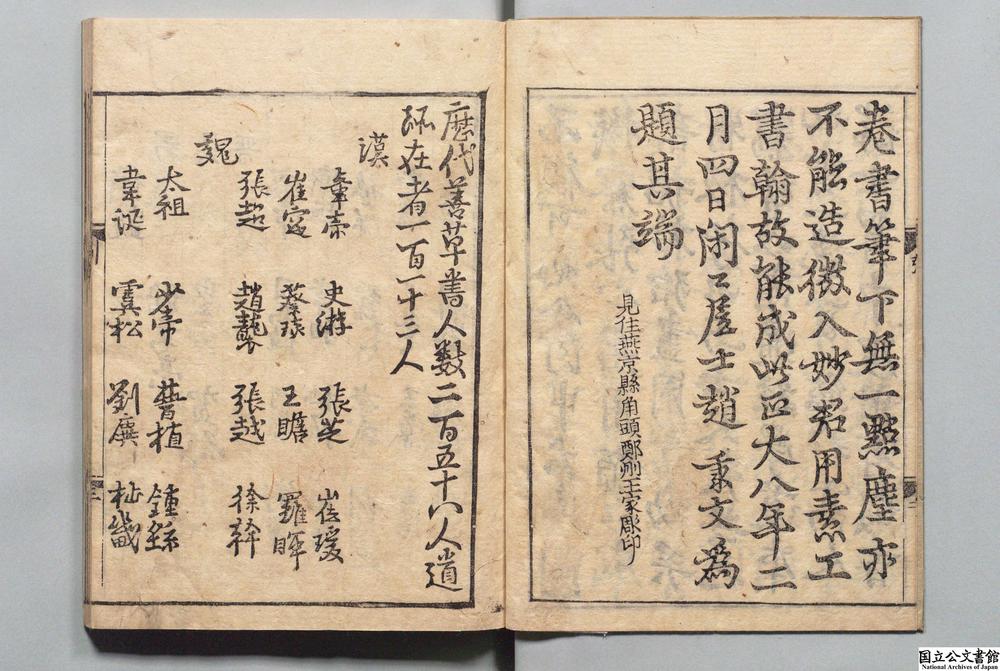 卷書筆下無一點塵亦
不能造微入妙君用素工
書翰故能成此正大八年二
月四日閑〻居士趙秉文爲
題其端
見住燕京縣角頭鄭州王家彫印
歷代善草書人數二百五十八人遺
跡在者一百一十三人
漢
章帝 史游 張芝 崔瑗
崔寔 蔡琰 王瞻 羅暉
張超 趙襲 張越 徐幹
魏
太祖 少帝 曹植 鍾繇
韋誕 虞松 劉廙 杜畿
国立公文書館
National Archives of Japan